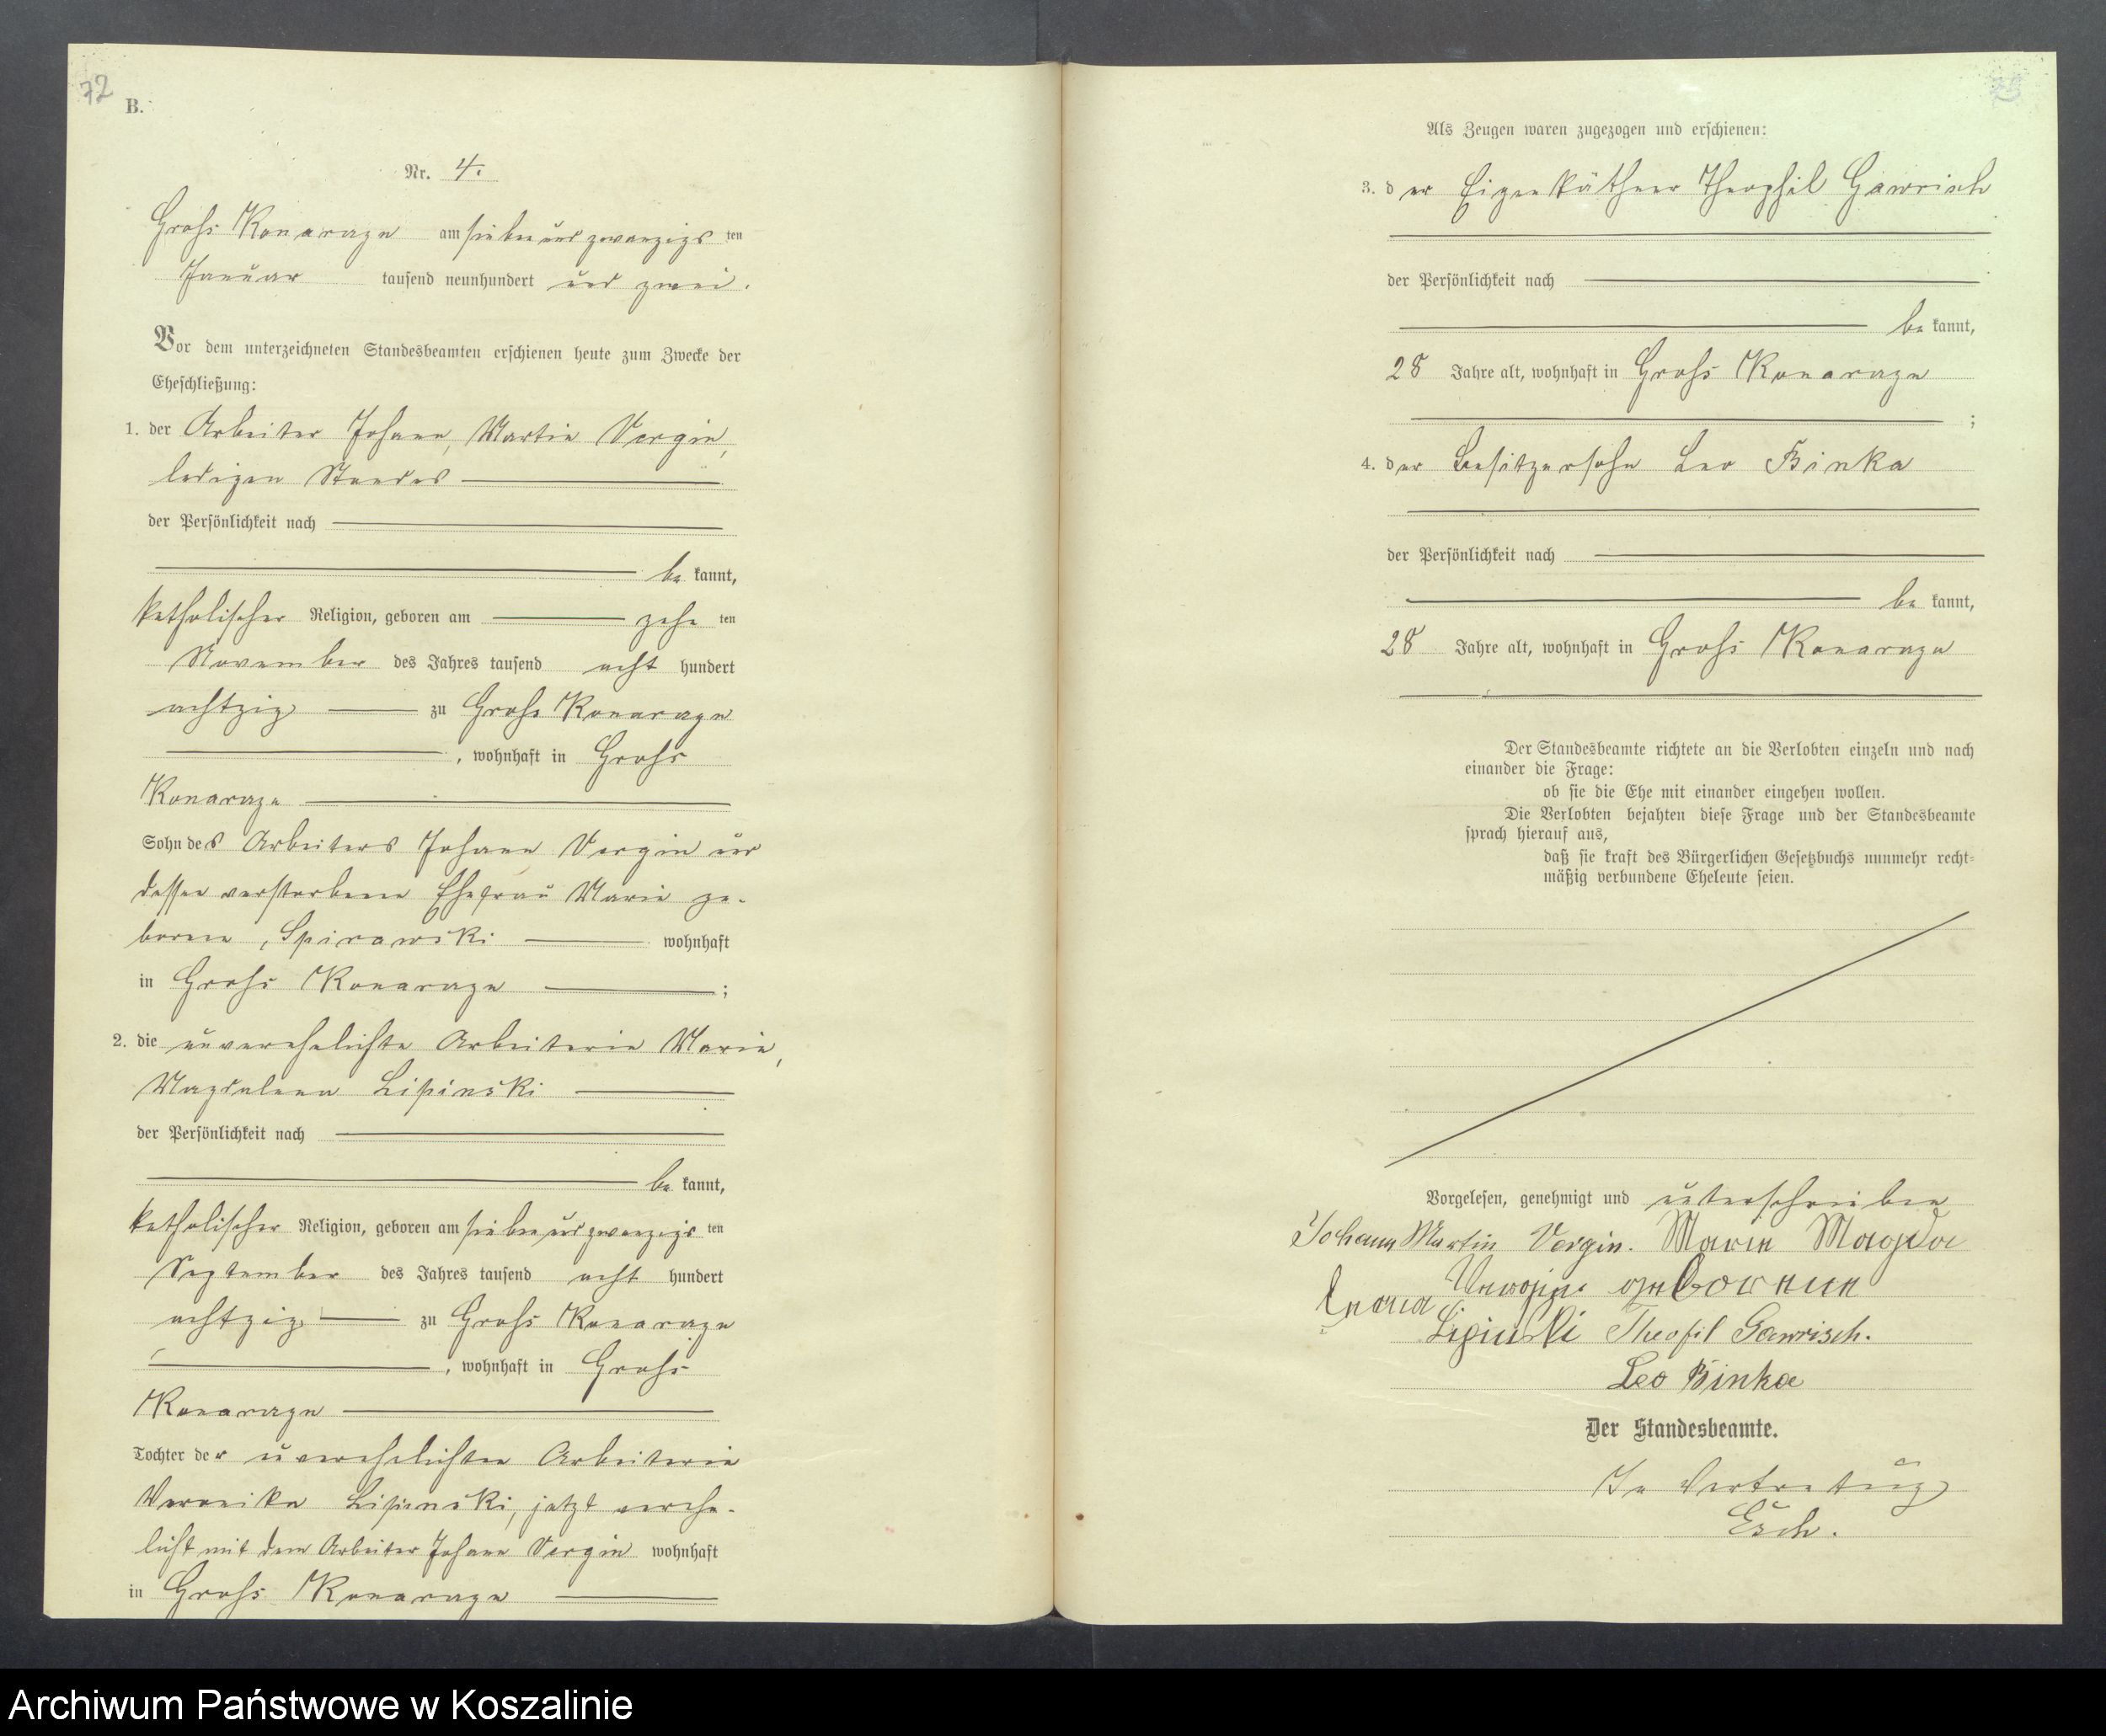 72
B.
Nr. 4.
Groß Konarczyn am siebenundzwanzigsten
Januar tausend neunhundert und zwei.
Vor dem unterzeichneten Standesbeamten erschienen heute zum Zwecke der
Eheschließung:
1. der Arbeiter Johann, Martin Vergin,
ledigen Standes
der Persönlichkeit nach
be kannt,
katholischer Religion, geboren am zehn ten
November des Jahres tausend acht hundert
achtzig zu Groß Konarczyn
, wohnhaft in Groß
Konarczyn
Sohn des Arbeiters Johann Vergin und
dessen verstorbenen Ehefrau Marie ge-
borene, Spirawski wohnhaft
in Groß Konarczyn ;
2. die unverehelichte Arbeiterin Marie,
Magdalena Lipinski
der Persönlichkeit nach
be kannt,
katholischer Religion, geboren am siebenundzwanzigsten
September des Jahres tausend acht hundert
achtzig zu Groß Konarczyn
, wohnhaft in Groß
Konarczyn
Tochter der unverehelichten Arbeiterin
Veronika Lipinski, jetzt verehe-
licht mit dem Arbeiter Johann Vergin wohnhaft
in Groß Konarczyn
73
Als Zeugen waren zugezogen und erschienen:
3. der Eigenkäthner Theophil Gawrisch
der Persönlichkeit nach
be kannt,
28 Jahre alt, wohnhaft in Groß Konarczyn
;
4. der Besitzersohn Leo Binka
der Persönlichkeit nach
be kannt,
28 Jahre alt, wohnhaft in Groß Konarczyn
Der Standesbeamte richtete an die Verlobten einzeln und nach
einander die Frage:
ob sie die Ehe mit einander eingehen wollen.
Die Verlobten bejahten diese Frage und der Standesbeamte
sprach hierauf aus,
daß sie kraft des Bürgerlichen Gesetzbuchs nunmehr recht-
mäßig verbundene Eheleute seien.
Vorgelesen, genehmigt und unterschrieben
Johann Martin Vergin. Marie Magda
lena geborene
Lipinski Theofil Gawrisch.
Leo Binka
Der Standesbeamte.
In Vertretung
Esch.
Archiwum Państwowe w Koszalinie